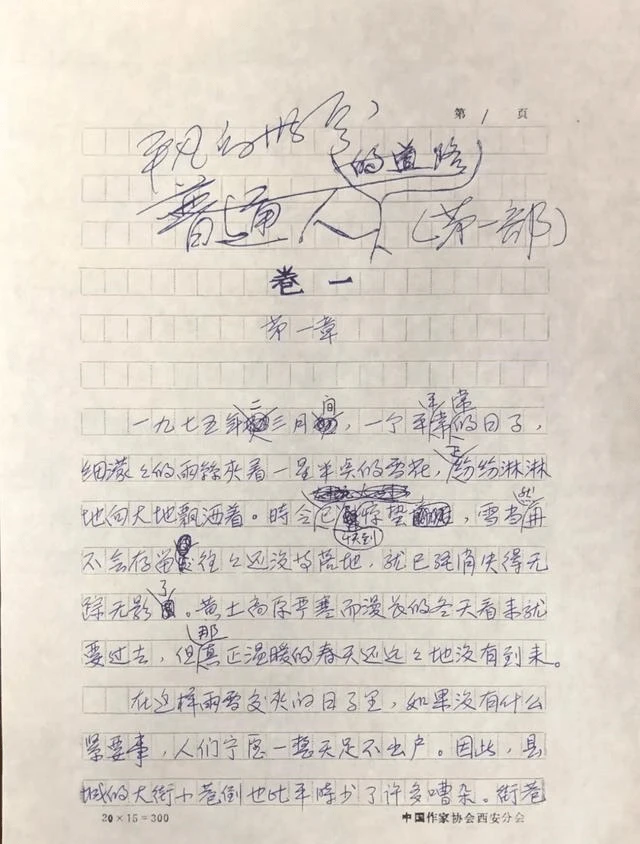 第 1 页
平凡的世界
的道路
普通人
（第一部）
卷 一
第一章
二 间 平常
一九七五年三月，一个平常的日子，
细濛々的雨丝夹着一星半点的雪花，正纷纷淋淋
地向大地飘洒着。时令已快到惊蛰，雪当然再
不会存留，往々还没等落地，就已经消失得无
踪无影了。黄土高原严寒而漫长的冬天看来就
要过去，但那真正温暖的春天还远々地没有到来。
在这样雨雪交夹的日子里，如果没有什么
紧要事，人们宁愿一整天足不出户。因此，县
城的大街小巷倒也比平时少了许多嘈杂。街巷
20×15=300
中国作家协会西安分会